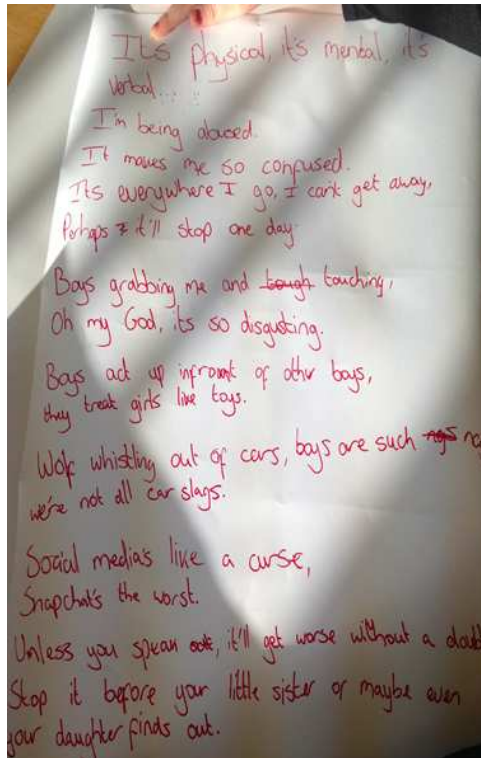 Its physical, it's mental, it's
verbal...
I'm being abused.
It makes me so confused.
Its everywhere I go, I can't get away,
Perhaps it'll stop one day.
Boys grabbing me and tough touching,
Oh my God, its so disgusting.
Boys act up infront of other boys,
they treat girls like toys.
Wolf whistling out of cars, boys are such
we're not all car slags.
Social media's like a curse,
Snapchat's the worst.
Unless you speak out, it'll get worse without a doub
Stop it before your little sister or maybe even
your daughter finds out.